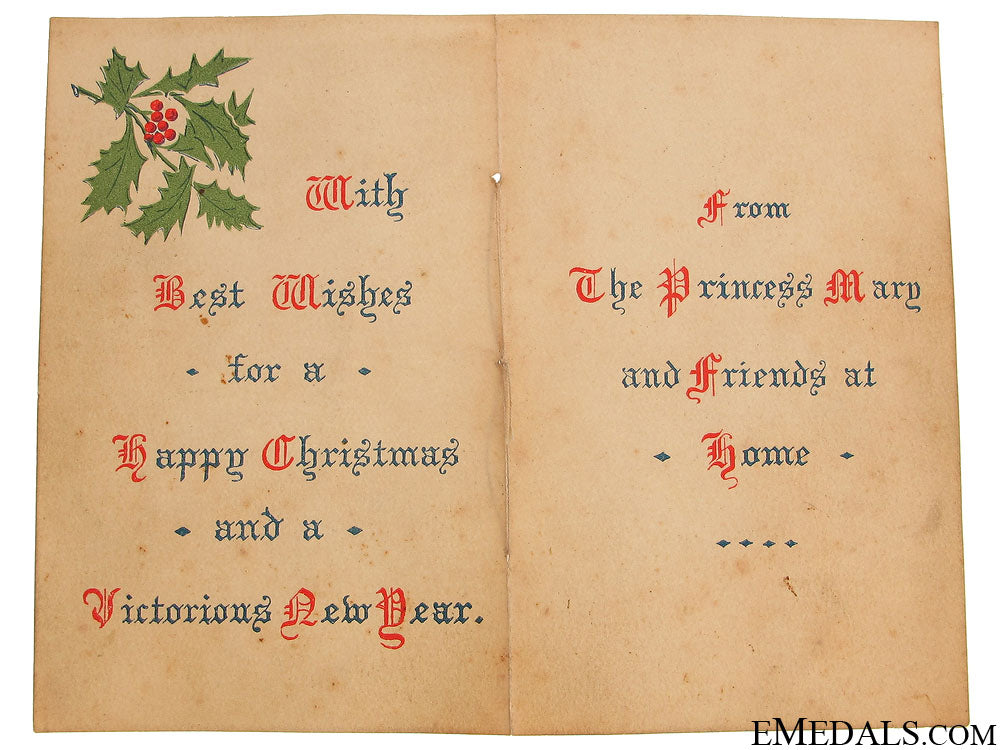 With
Best Wishes
for a
Happy Christmas
and a
Victorious New Year.
From
The Princess Mary
and Friends at
Home
EMEDALS.COM